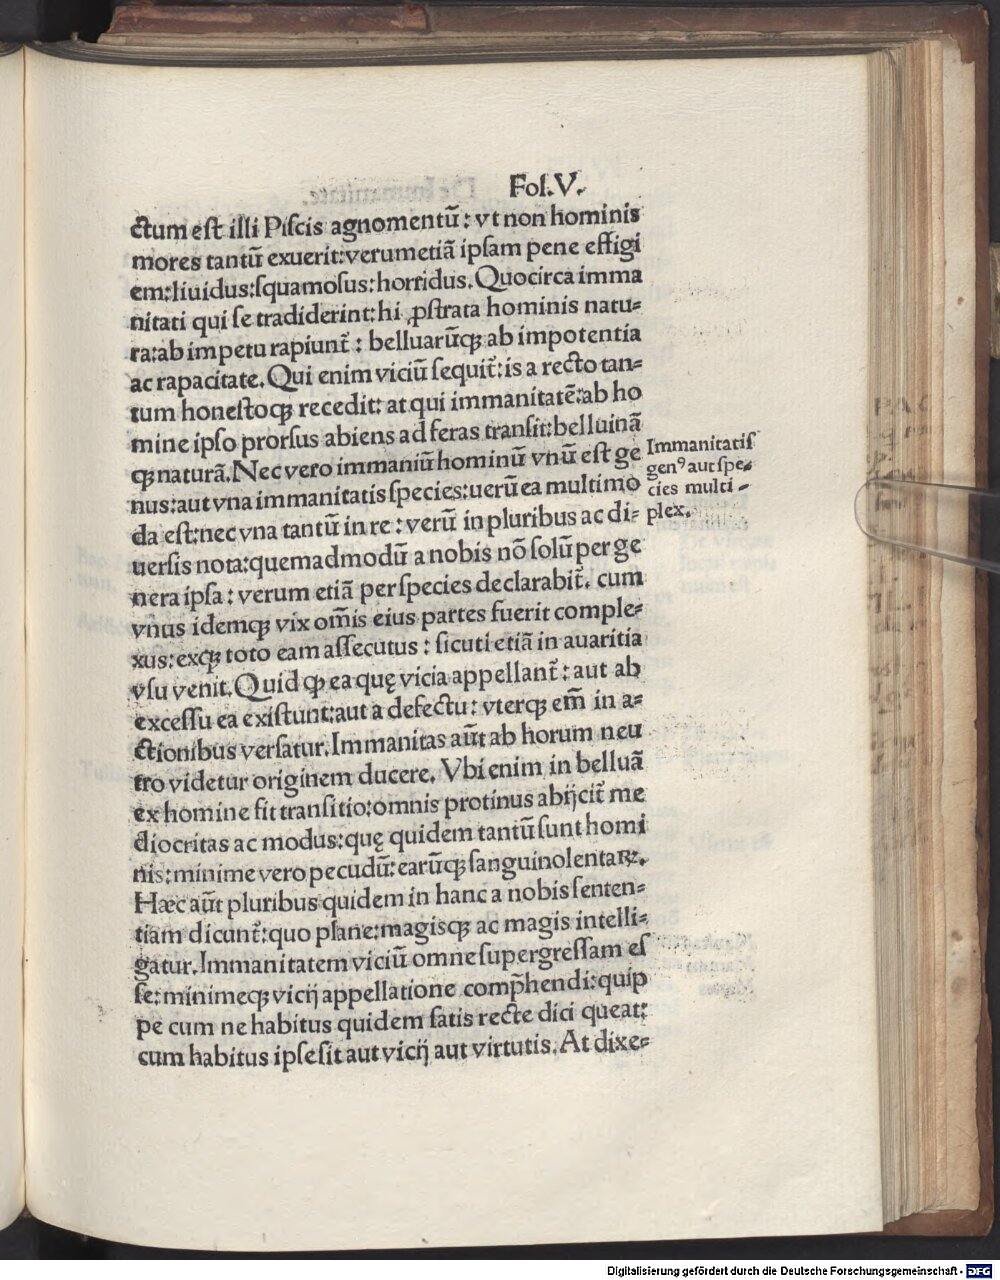 Fol.V.
ctum est illi Piscis agnomentū: vt non hominis
mores tantū exuerit: verumetiā ipsam pene effigi
em: liuidus: squamosus: horridus. Quocirca imma
nitati qui se tradiderint: hi ꝓstrata hominis natu=
ra: ab impetu rapiunt̃: belluarūqꝫ ab impotentia
ac rapacitate. Qui enim viciū sequit̃: is a recto tan=
tum honestoqꝫ recedit: at qui immanitatē: ab ho
mine ipso prorsus abiens ad feras transit: belluinā
qꝫ naturā. Nec vero immaniū hominū vnū est ge
nus: aut vna immanitatis species: uerū ea multimo
da est: nec vna tantū in re: verū in pluribus ac di=
uersis nota: quemadmodū a nobis nō solū per ge
nera ipsa: verum etiā per species declarabit̃. cum
vnus idemqꝫ vix om̄is eius partes fuerit comple=
xus: exqꝫ toto eam assecutus: sicuti etiā in auaritia
vsu venit. Quid qꝫ ea quę vicia appellant̃: aut ab
excessu ea existunt: aut a defectu: vterqꝫ em̄ in a=
ctionibus versatur. Immanitas aūt ab horum neu
tro videtur originem ducere. Vbi enim in belluā
ex homine fit transitio: omnis protinus abijcit̃ me
diocritas ac modus: quę quidem tantū sunt homi
nis: minime vero pecudū: earūqꝫ sanguinolentaꝝ.
Hæc aūt pluribus quidem in hanc a nobis senten=
tiam dicunt̃: quo plane: magisqꝫ ac magis intelli=
gatur. Immanitatem viciū omne supergressam es
se: minimeqꝫ vicij appellatione comp̄hendi: quip
pe cum ne habitus quidem satis recte dici queat:
cum habitus ipse sit aut vicij aut virtutis. At dixe=
Immanitatis
genꝰ aut spe=
cies multi=
plex.
Digitalisierung gefördert durch die Deutsche Forschungsgemeinschaft - DFG